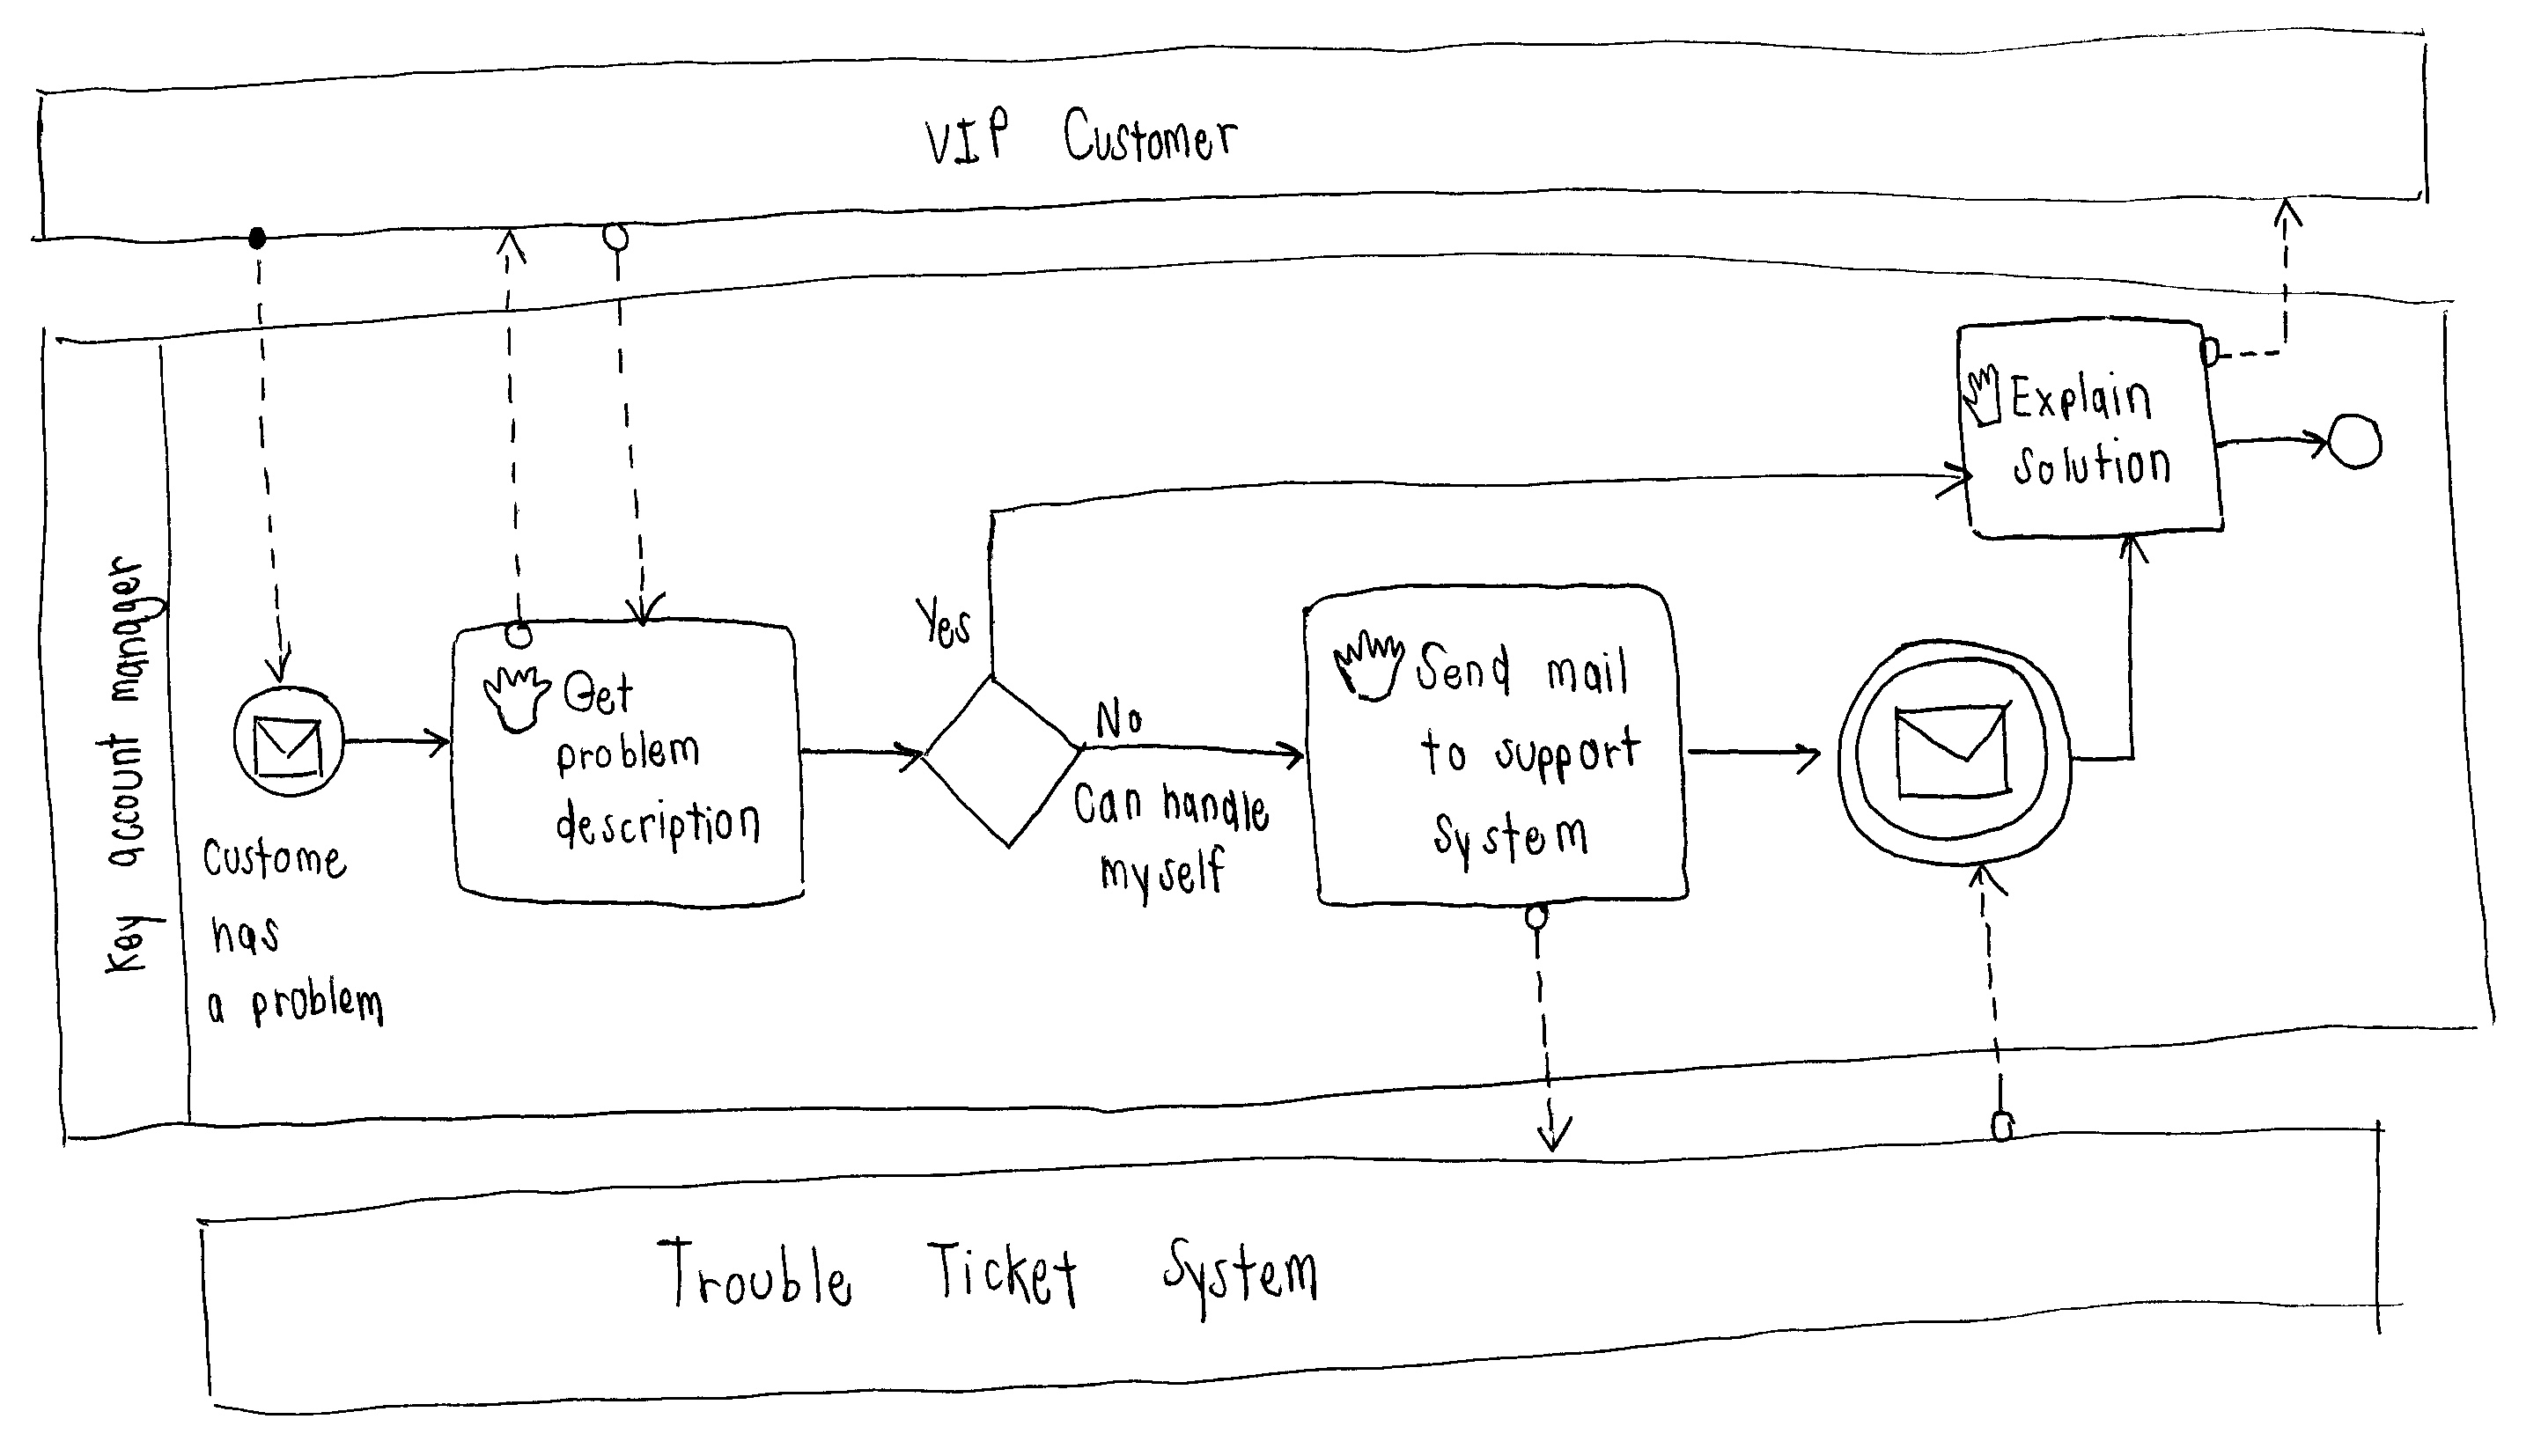 VIP Customer
Key account manager
Custome
has
a problem
Get
problem
description
Yes
No
Can handle
myself
Send mail
to support
System
Explain
Solution
Trouble Ticket System